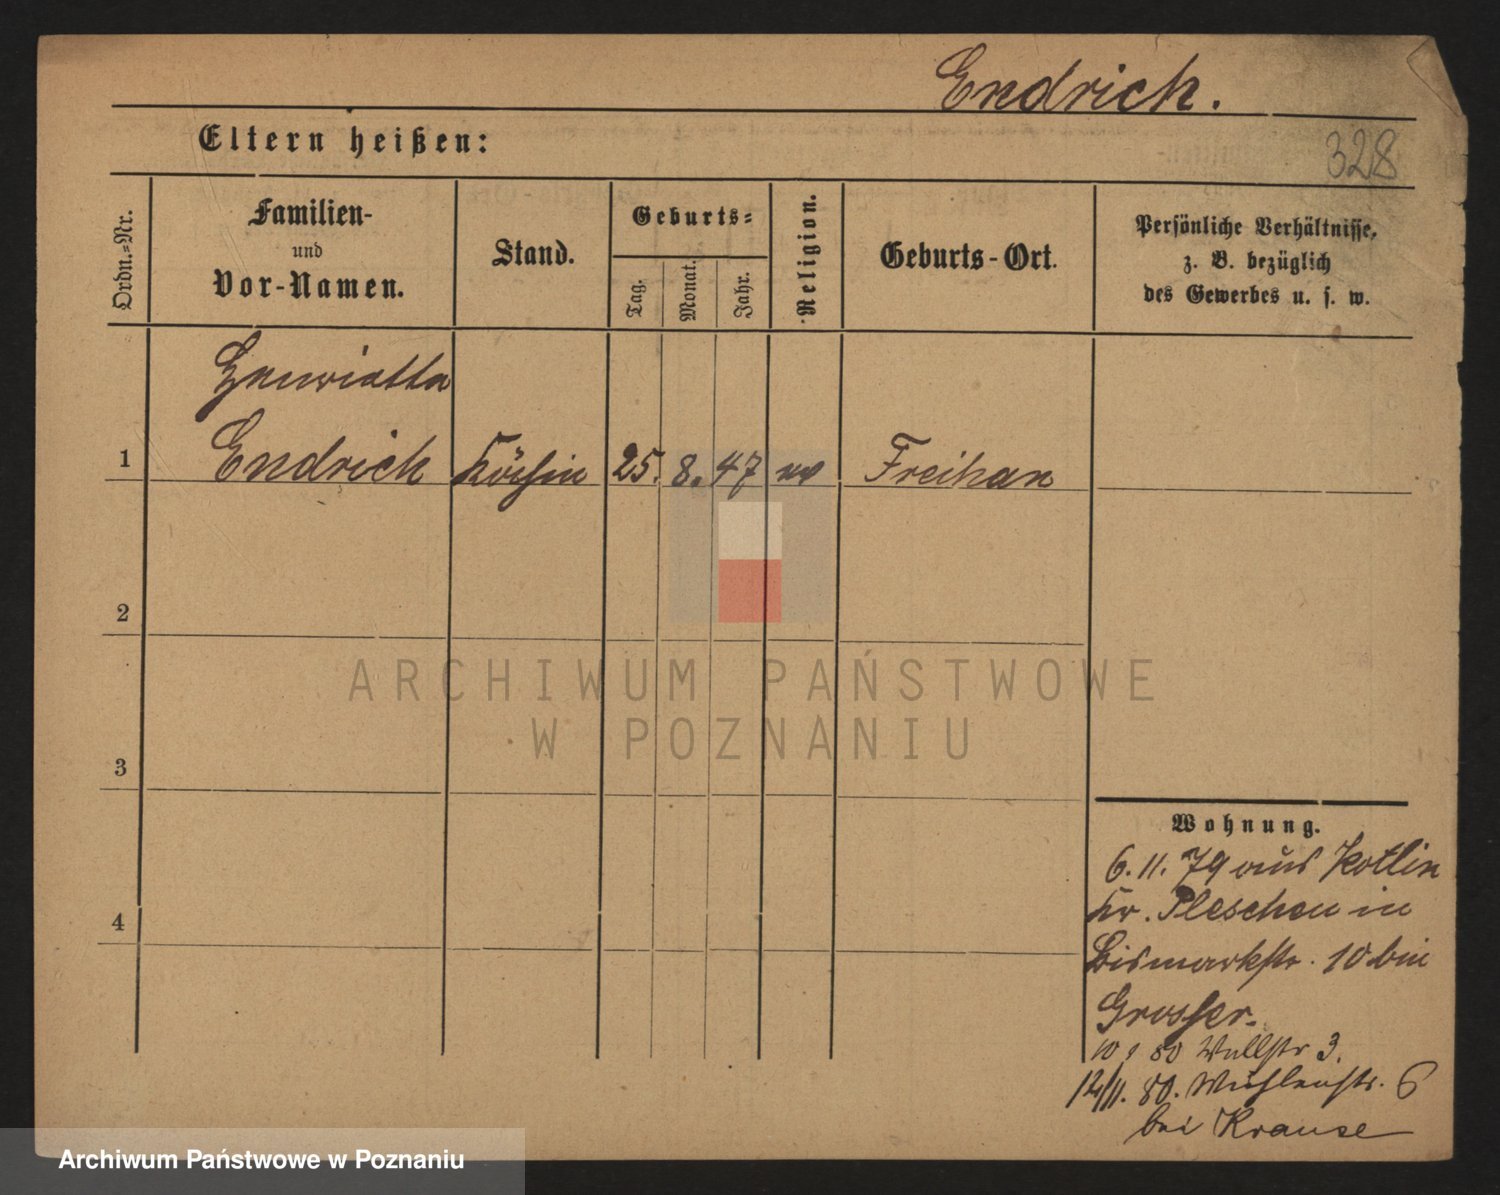 Endrich.
Eltern heißen:
328
Ordn.=Nr.
Familien-
und
Vor-Namen.
Stand.
Geburts=
Tag.
Monat.
Jahr.
Religion.
Geburts-Ort.
Persönliche Verhältnisse,
z. B. bezüglich
des Gewerbes u. s. w.
Henriette
1 Endrich Köchin 25. 8. 47 Freihan
2
ARCHIWUM PAŃSTWOWE
W POZNANIU
3
Wohnung.
6. 11. 79 aus Kotlin
Kr. Pleschen in
4
Bismarkstr. 10 bei
Grosser.
80 Wallstr 3.
12/11. 80. Mühlenstr. 6
bei Krause
Archiwum Państwowe w Poznaniu